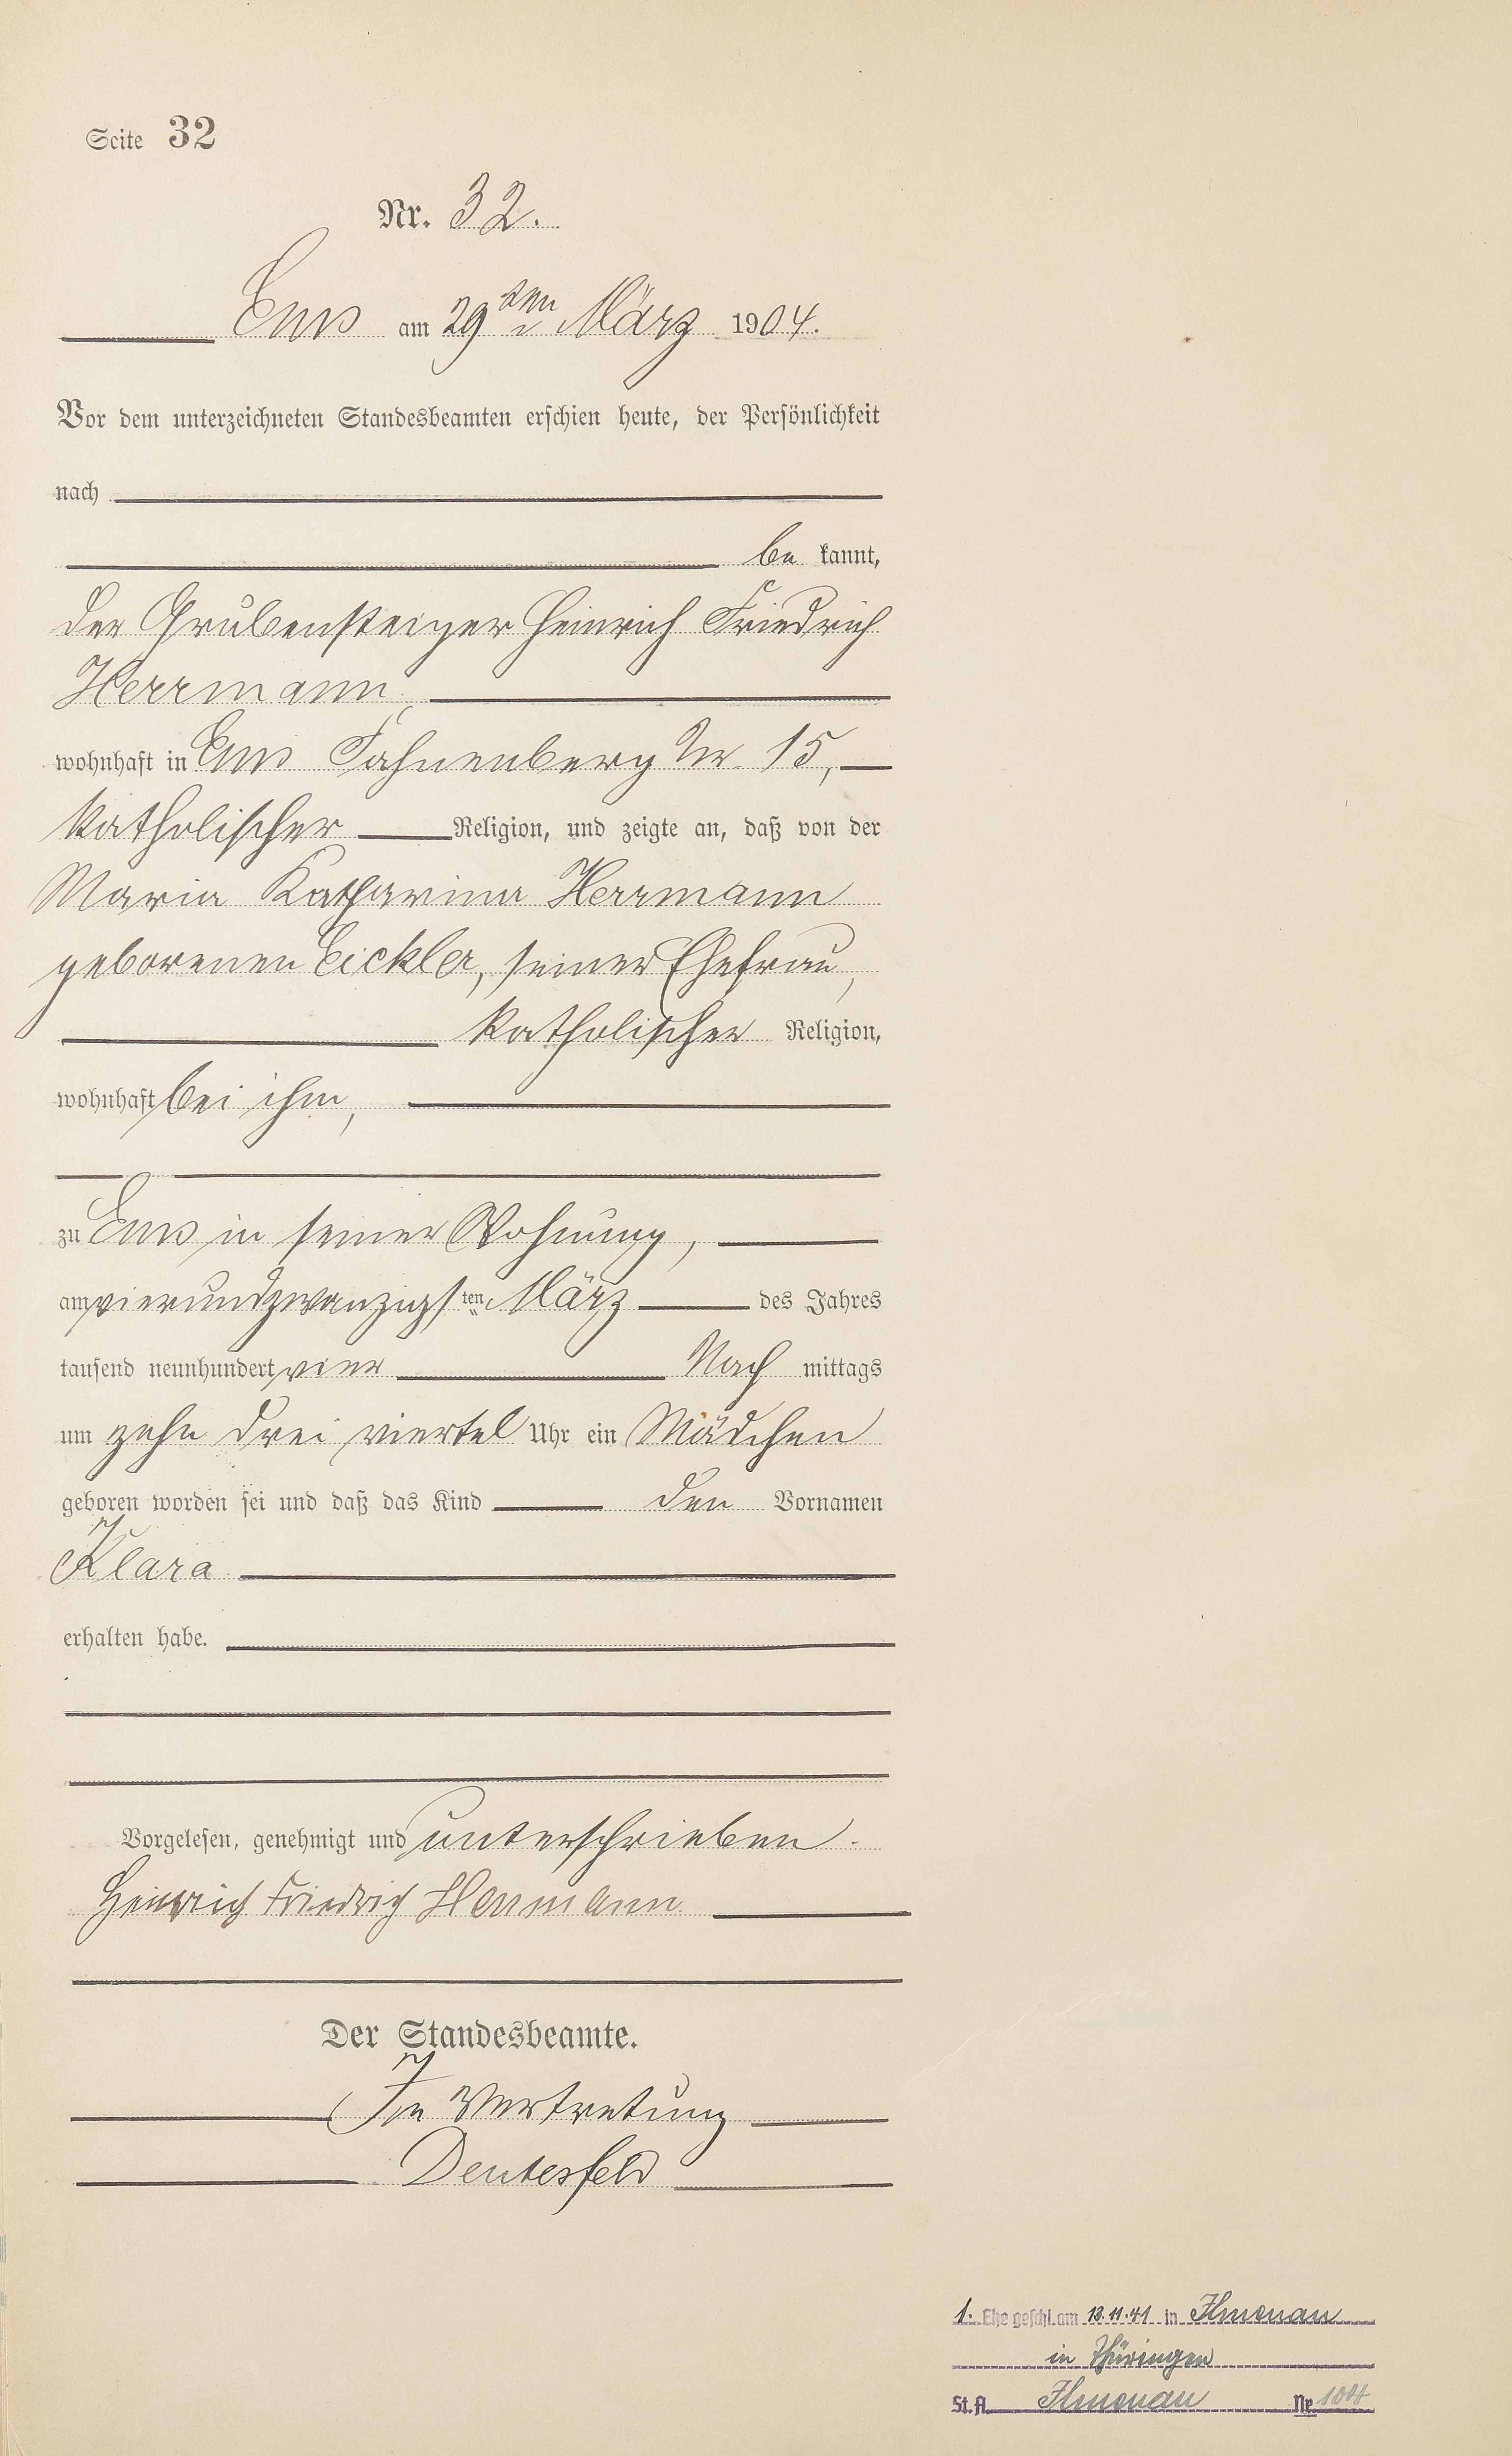 Seite 32
Nr. 32.
Ems am 29ten März 1904.
Vor dem unterzeichneten Standesbeamten erschien heute, der Persönlichkeit
nach
be kannt,
der Grubensteiger Heinrich Friedrich
Herrmann,
wohnhaft in Ems Fahnenberg Nr 15,
katholischer Religion, und zeigte an, daß von der
Maria Katharina Herrmann
geborenen Eickler, seiner Ehefrau,
katholischer Religion,
wohnhaft bei ihm,
zu Ems in seiner Wohnung,
am vierundzwanzigsten März des Jahres
tausend neunhundert vier Nach mittags
um zehn drei viertel Uhr ein Mädchen
geboren worden sei und daß das Kind den Vornamen
Klara
erhalten habe.
Vorgelesen, genehmigt und unterschrieben.
Heinrich Friedrich Herrmann
Der Standesbeamte.
In Vertretung
Deutesfeld
1. Ehe geschl. am 13.11.41 in Ilmenau
in Thüringen
St.A. Ilmenau Nr. 104